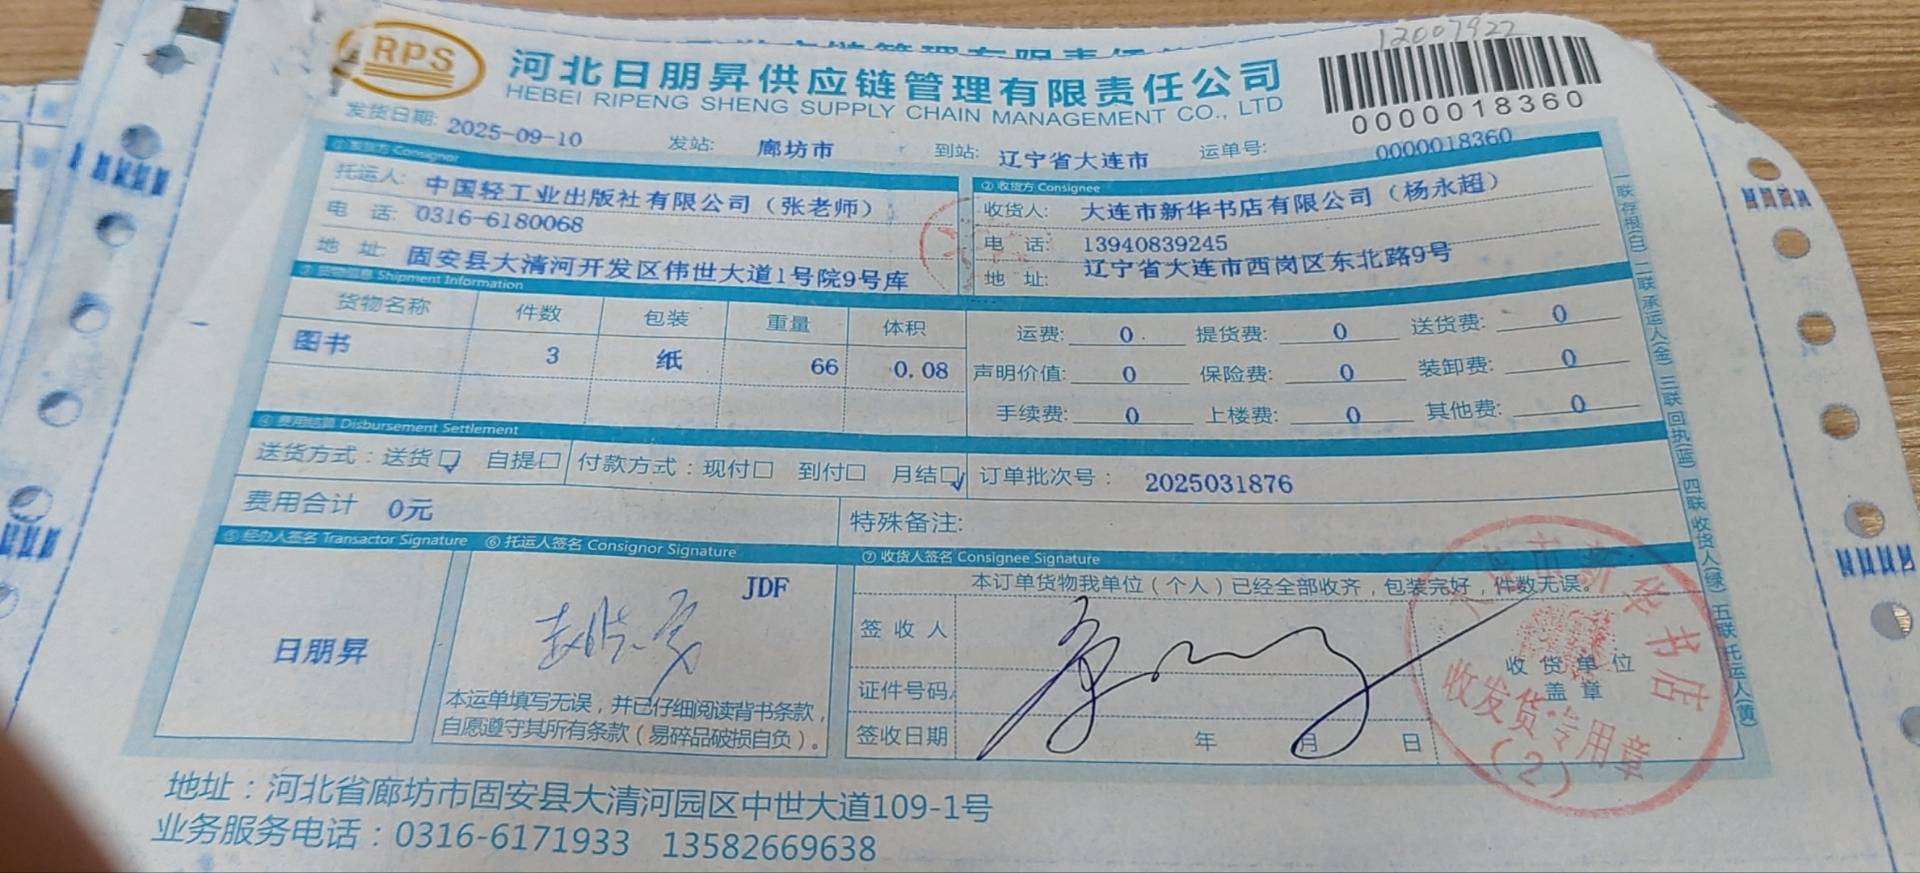 12007922
RPS
河北日朋昇供应链管理有限责任公司
HEBEI RIPENG SHENG SUPPLY CHAIN MANAGEMENT CO., LTD
0000018360
发货日期: 2025-09-10 发站: 廊坊市 到站: 辽宁省大连市 运单号: 0000018360
①发货方 Consignor
②收货方 Consignee
托运人: 中国轻工业出版社有限公司（张老师）
收货人: 大连市新华书店有限公司（杨永超）
电 话: 0316-6180068
电 话: 13940839245
地 址: 固安县大清河开发区伟世大道1号院9号库
地 址: 辽宁省大连市西岗区东北路9号
③货物信息 Shipment Information
货物名称 件数 包装 重量 体积
图书 3 纸 66 0.08
运费: 0 提货费: 0 送货费: 0
声明价值: 0 保险费: 0 装卸费: 0
手续费: 0 上楼费: 0 其他费: 0
④费用结算 Disbursement Settlement
送货方式：送货☑ 自提口 付款方式：现付口 到付口 月结☑ 订单批次号： 2025031876
费用合计 0元 特殊备注:
⑤经办人签名 Transactor Signature ⑥托运人签名 Consignor Signature ⑦收货人签名 Consignee Signature
本订单货物我单位（个人）已经全部收齐，包装完好，件数无误。
JDF
日朋昇
签 收 人
证件号码
签收日期 年 月 日
收 货 单 位
盖 章
本运单填写无误，并已仔细阅读背书条款，
自愿遵守其所有条款（易碎品破损自负）。
市新华书店
收发货专用章
（2）
一联存根(白) 二联承运人(金) 三联回执(蓝) 四联收货人(绿) 五联托运人(黄)
地址：河北省廊坊市固安县大清河园区中世大道109-1号
业务服务电话：0316-6171933 13582669638